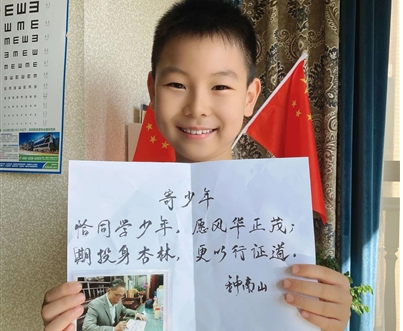 寄少年
恰同学少年，愿风华正茂；
期投身杏林，更以行证道。
钟南山